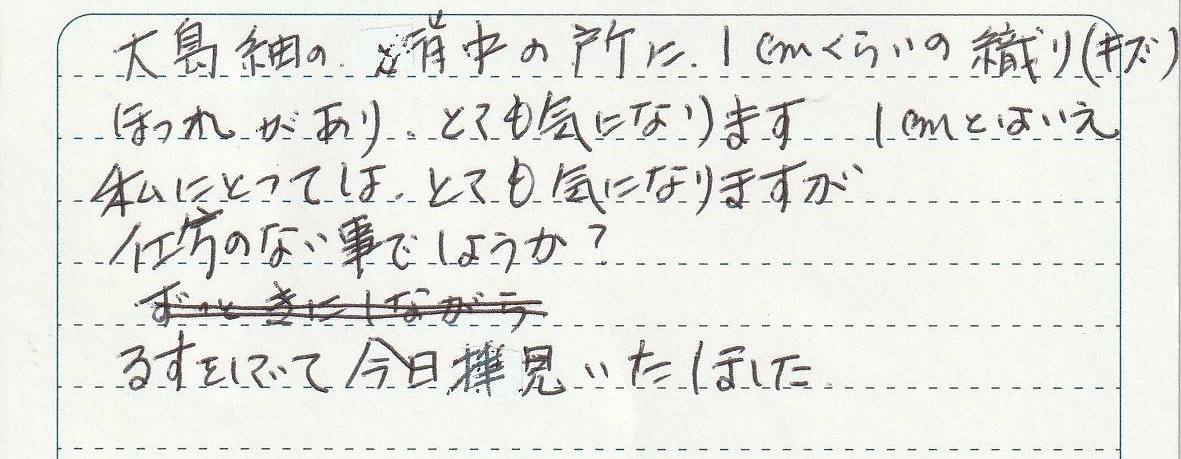 大島紬の 背中の所に、1cmくらいの織り(キズ)
ほつれがあり、とても気になります 1cmとはいえ
私にとっては、とても気になりますが
仕方のない事でしょうか?
ずっときにしながら
るすをしてて今日拝見いたしました